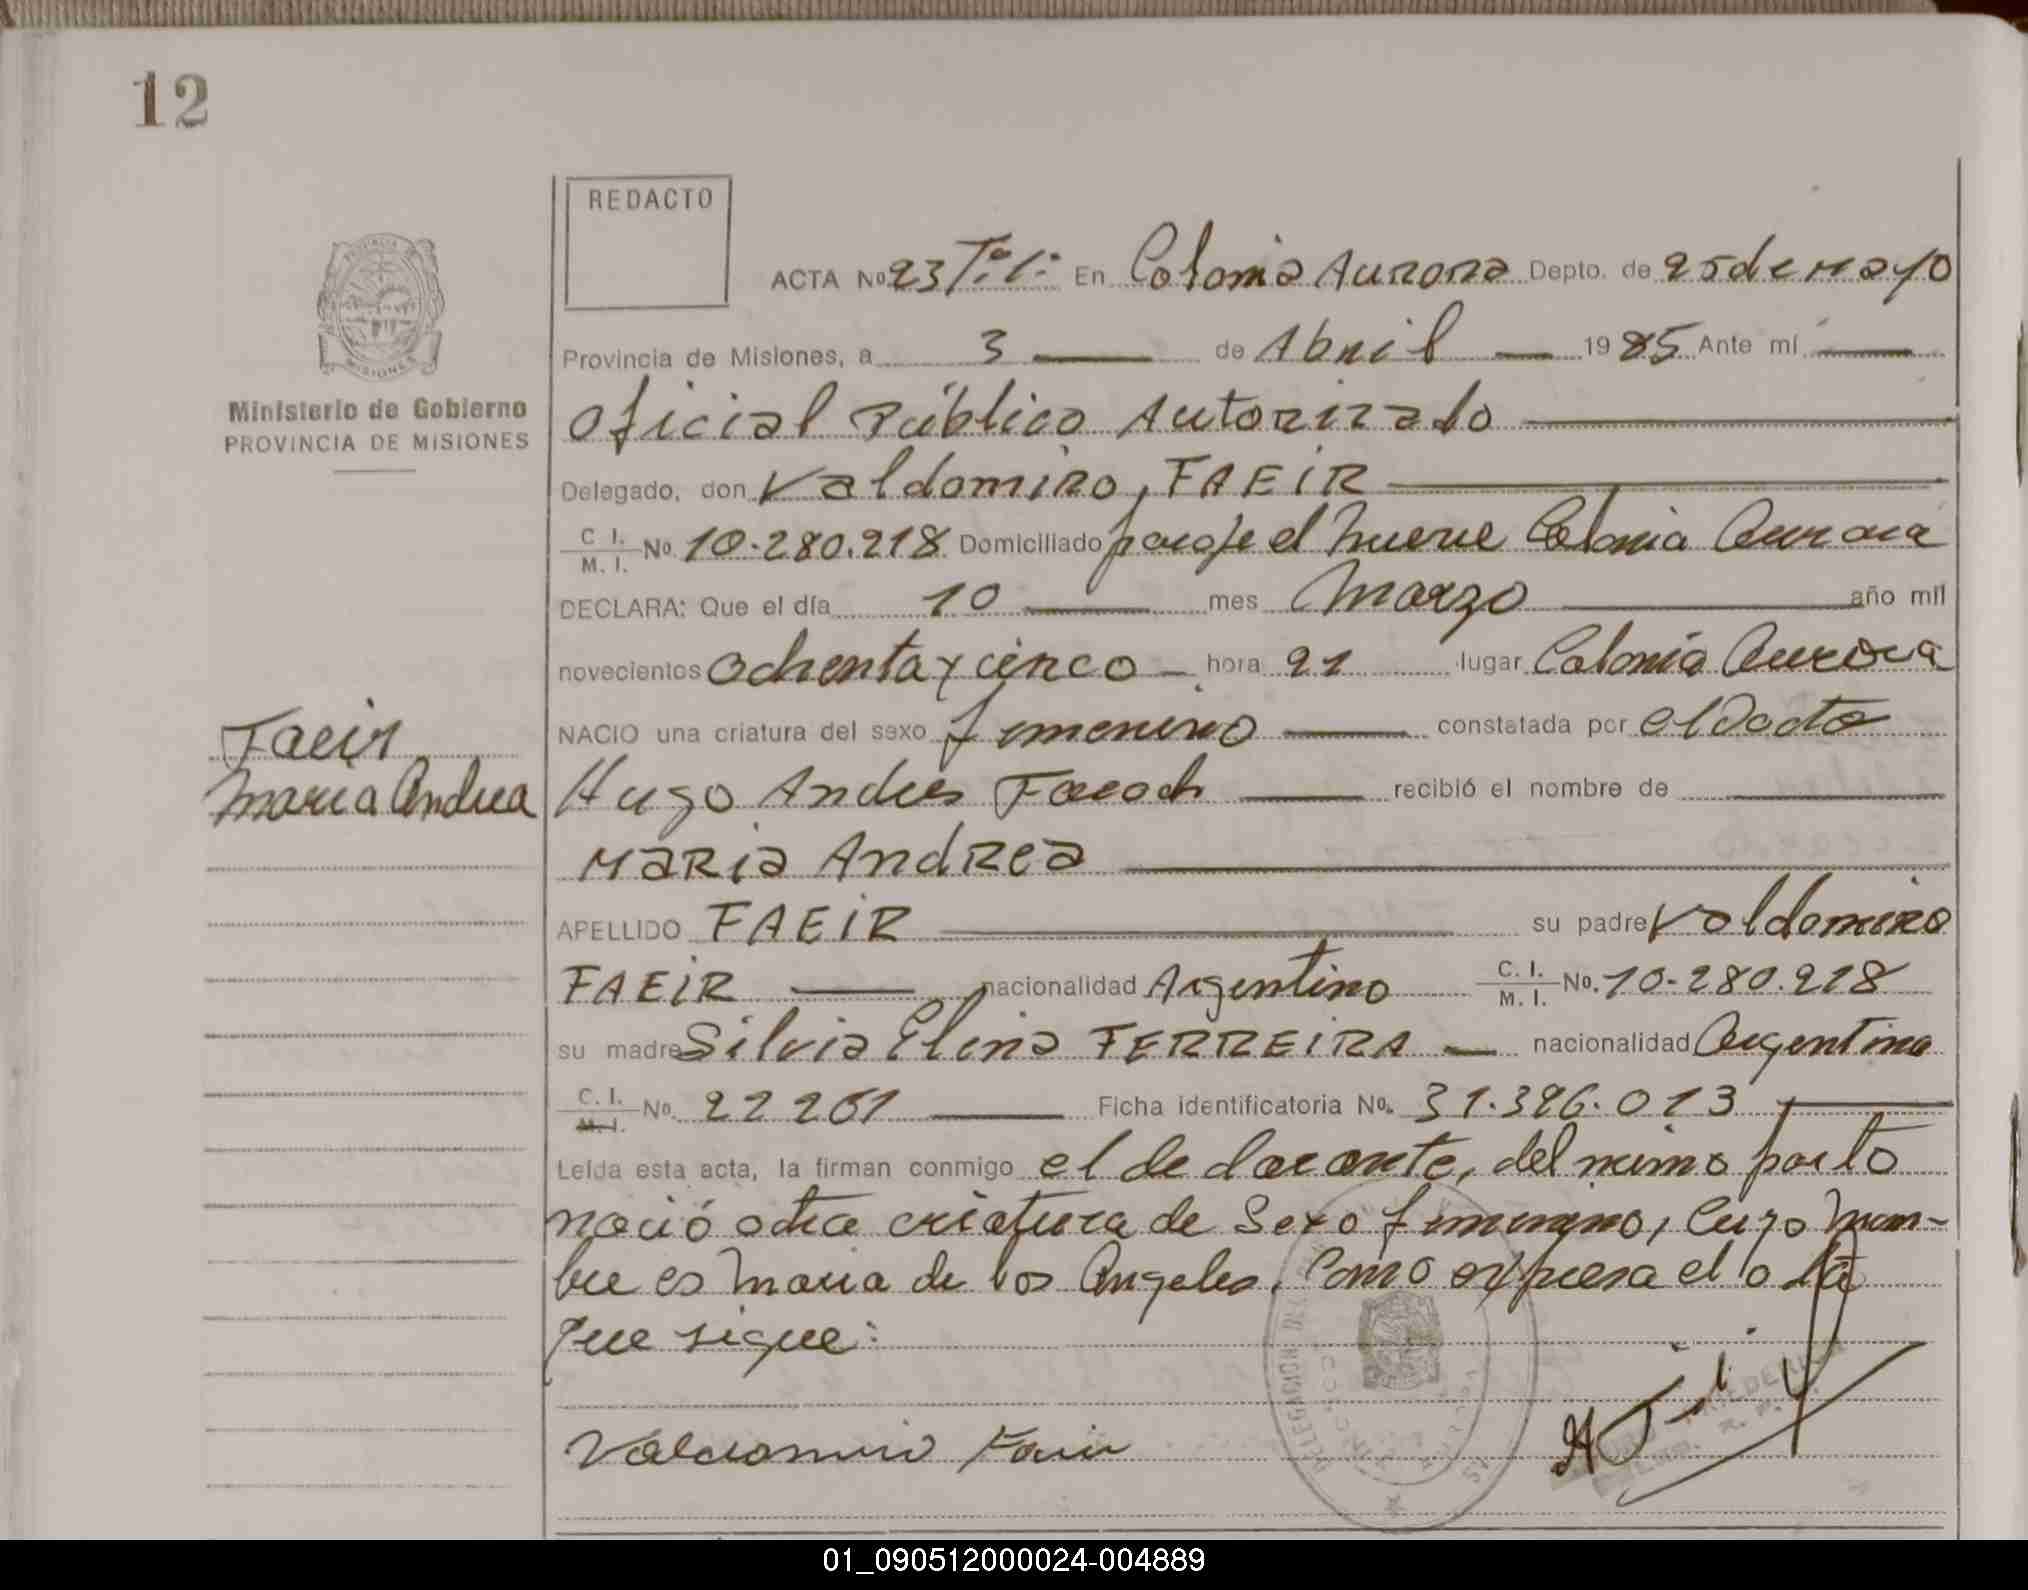 12
REDACTO
ACTA Nº 23 Tº 1º En Colonia Aurora Depto. de 25 de Mayo
Provincia de Misiones, a 3 de Abril 1985 Ante mí
Ministerio de Gobierno
PROVINCIA DE MISIONES
MISIONES
Oficial Público Autorizado
Delegado, don Valdomiro, FAEIR
C. I. / M. I. No. 10.280.218 Domiciliado paraje el nueve Colonia Aurora
DECLARA: Que el día 10 mes Marzo año mil
novecientos ochenta y cinco hora 21 lugar Colonia Aurora
NACIO una criatura del sexo femenino constatada por el Doctor
Faeir
Maria Andrea
Hugo Andres recibió el nombre de
MARIA ANDREA
APELLIDO FAEIR su padre Valdomiro
FAEIR nacionalidad Argentino C. I. / M. I. No. 10.280.218
su madre Silvia Elena FERREIRA nacionalidad Argentina
C. I. / M. I. No. 22261 Ficha identificatoria No. 31.396.013
Leída esta acta, la firman conmigo el declarante, del mismo parto
nació otra criatura de sexo femenino, cuyo nom-
bre es Maria de los Angeles. Como expresa el acta
que sigue:
Valdomiro Faeir
01_090512000024-004889